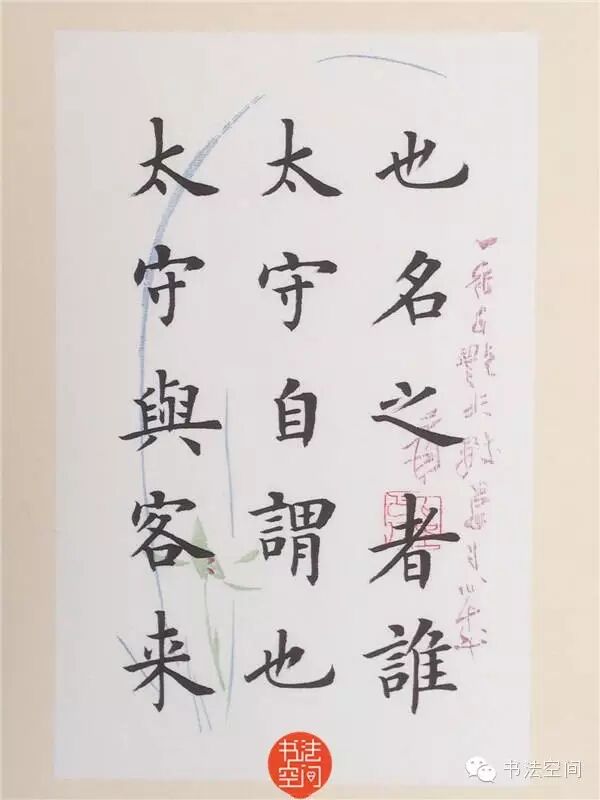 也名之者誰
太守自謂也
太守與客来
书法空间
书法空间